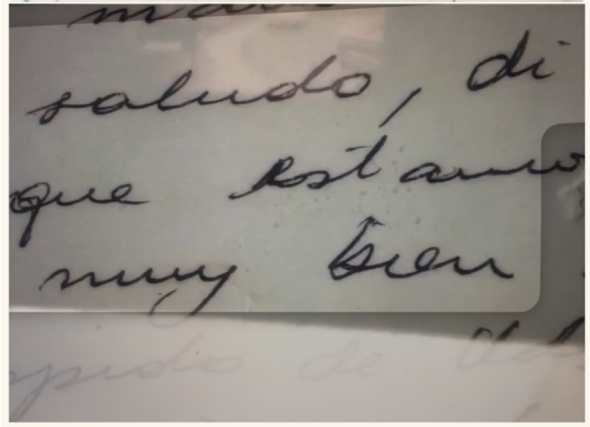 saludo, di
que estamo
muy bien
de